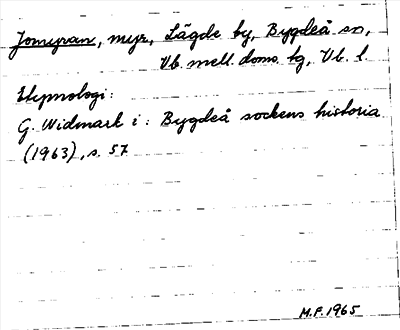 Jomyran, myr, Lägde by, Bygdeå sn,
Vb. mell. doms. tg, Vb. l.
Etymologi:
G. Widmark i: Bygdeå sockens historia
(1963), s. 57
M.F. 1965